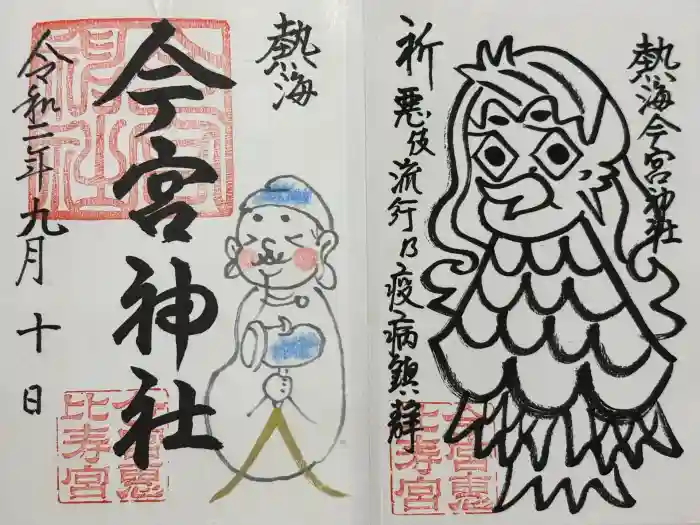 熱海
今宮神社
令和二年九月十日
今宮恵
比寿宮
熱海今宮神社
祈 悪伎流行乃疫病鎮
今宮恵
比寿宮